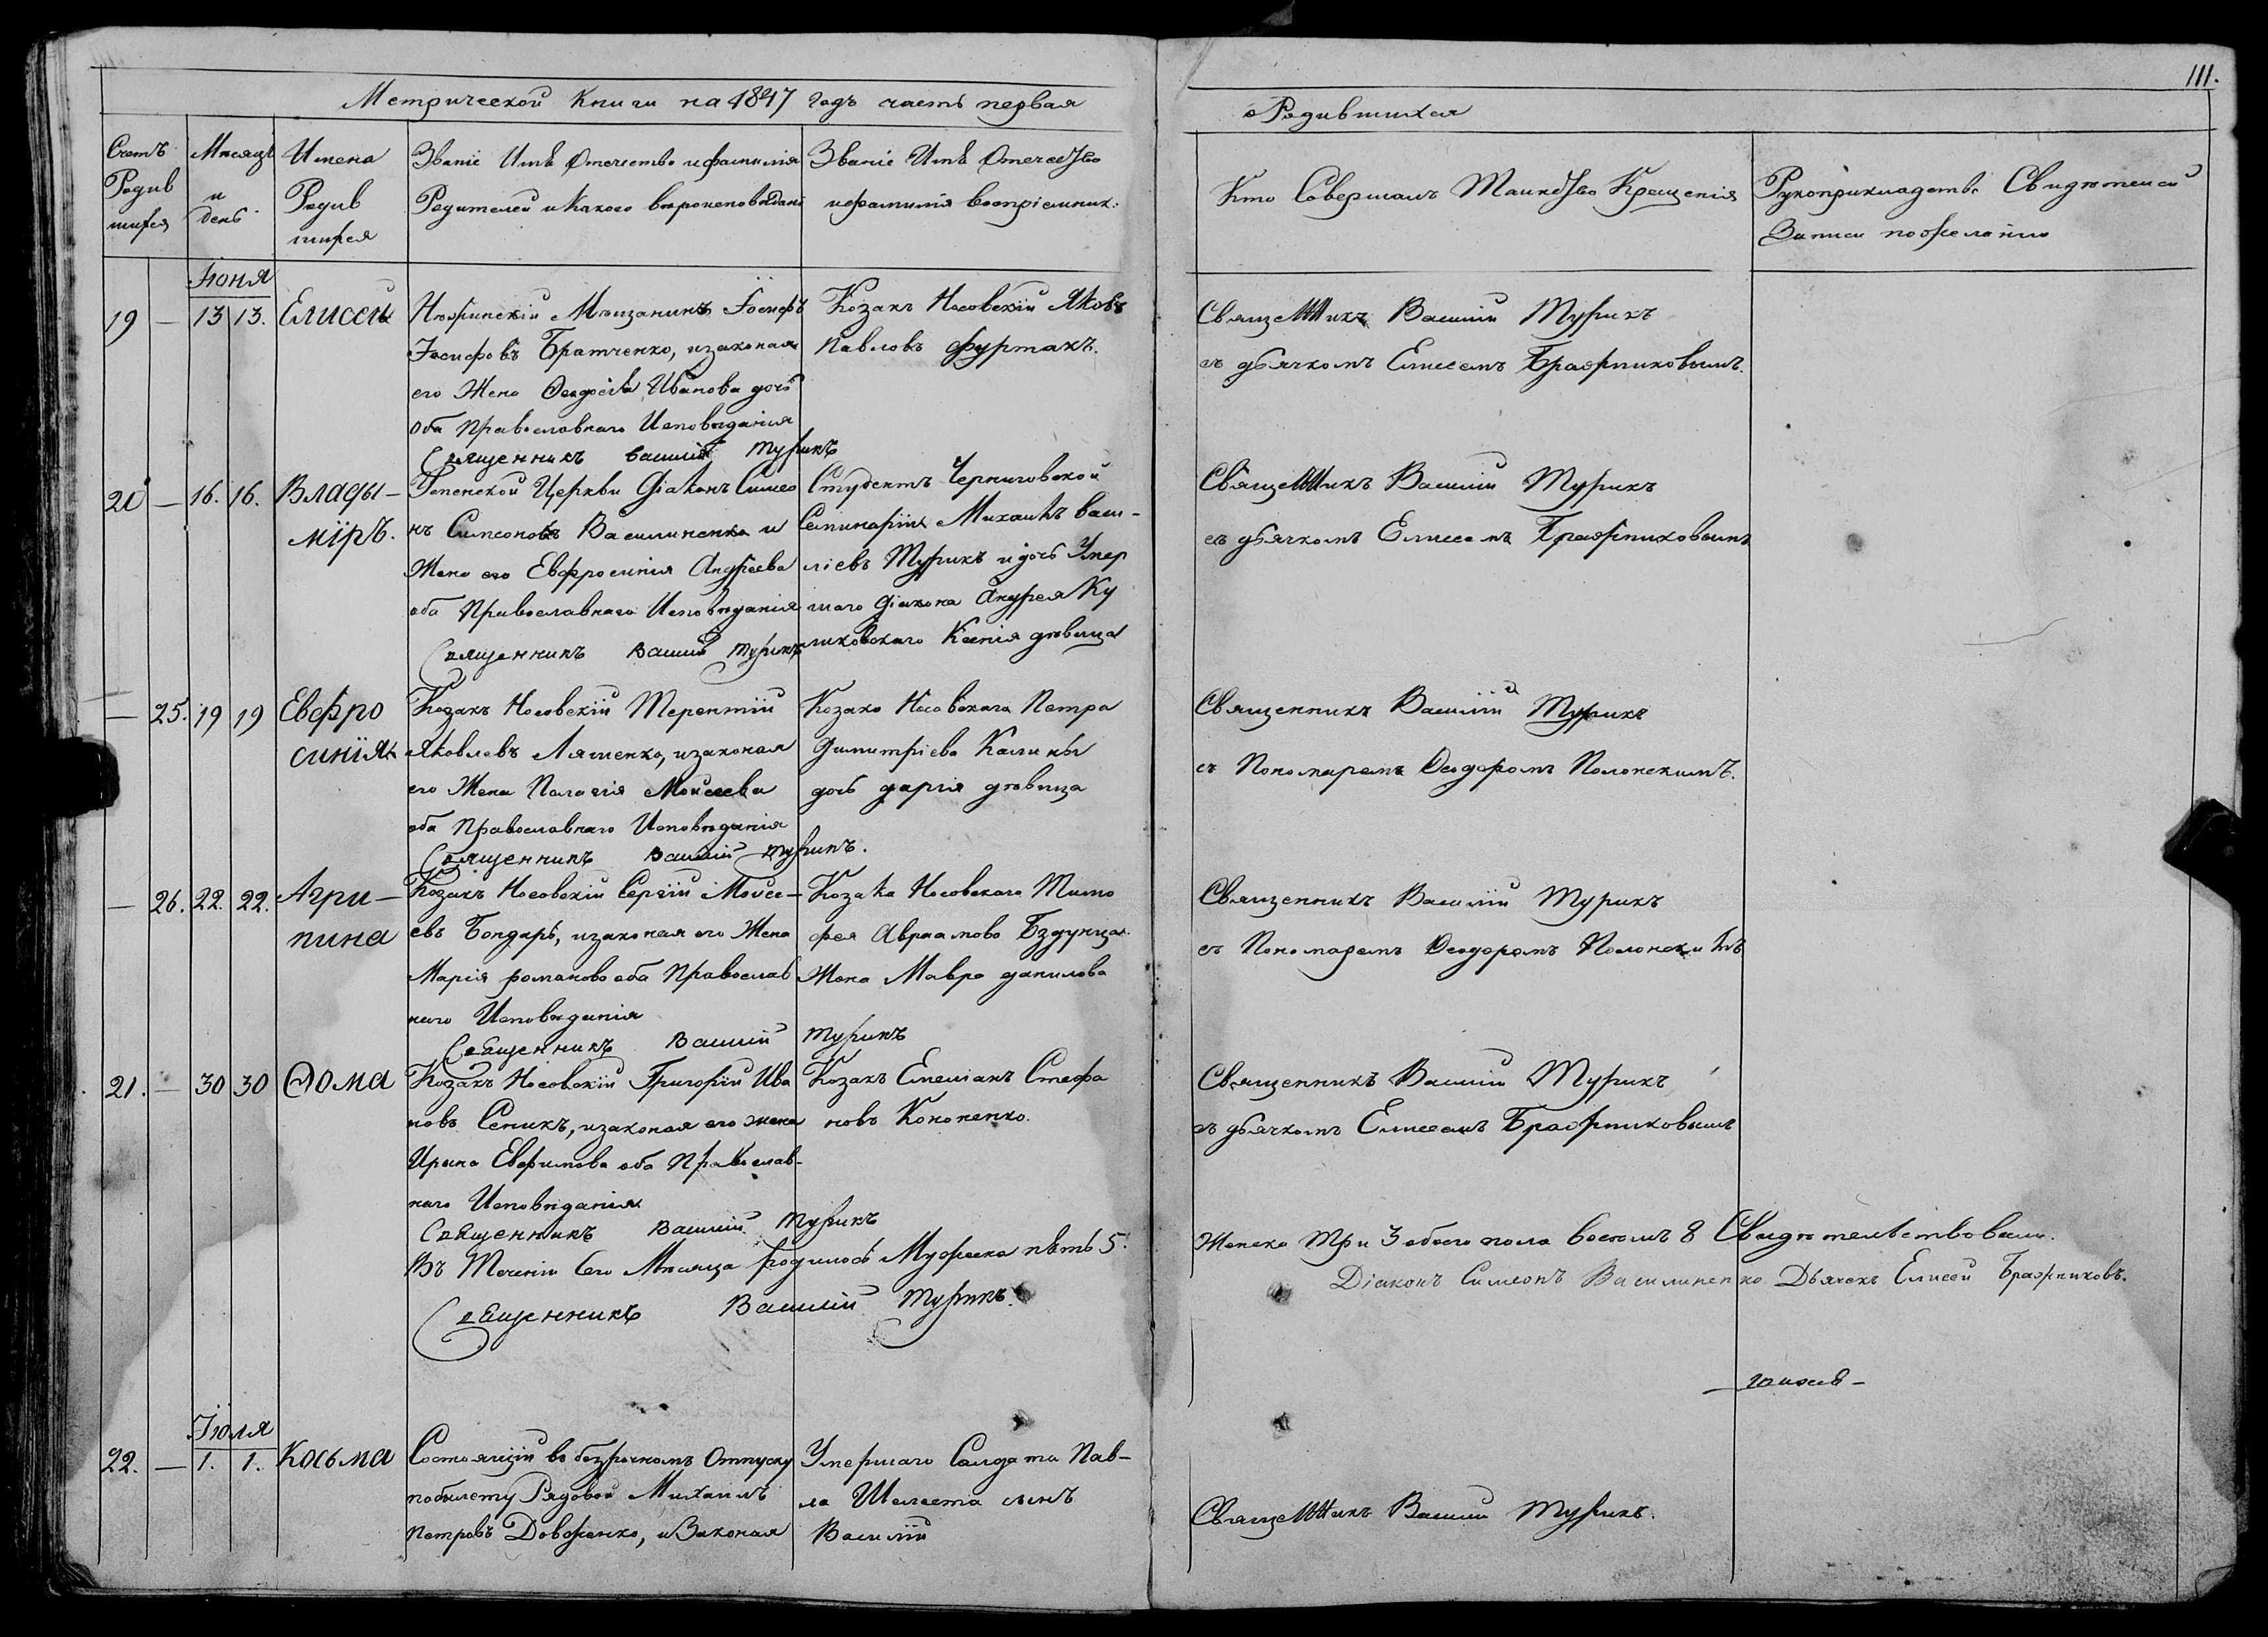 111.
Метрической Книги на 1847 годъ часть первая
о Родившихся
Счетъ
Родив
шихся
Мѣсяцъ
и
день
Имена
Родив
шихся
Званіе Имя Отечество и фамилія
Родителей и Какого вѣроисповѣданія
Званіе Имя Отечество
и фамилія воспріемник:
Кто Совершалъ Таинство Крещенія
Рукоприкладство Свидѣтелей
Записи по желанію
Іюня
19 — 13 13. Елиссей
Нѣжинскій Мѣщанинъ Іосифъ
Іосифовъ Братченко, изаконая
его Жена Феодосія Иванова дочь
Оба Православнаго Исповѣданія
Священникъ Василій Турикъ
Козакъ Носовскій Яковъ
Павловъ Фуртакъ.
Священникъ Василій Турикъ
съ дьячкомъ Елисеемъ Бражниковымъ.
20 — 16. 16. Влады-
міръ.
Успенской Церкви Діаконъ Симео
нъ Симеоновъ Василиненко и
Жена его Евфросинія Андреева
оба Православнаго Исповѣданія
Священникъ Василій Турикъ
Студентъ Черниговской
Семинаріи Михаилъ Васи-
ліевъ Турикъ и дочь Умер
шаго Діакона Андрея Ку
ликовскаго Ксенія дѣвица
Священникъ Василій Турикъ
съ дьячкомъ Елисеемъ Бражниковымъ
— 25. 19 19 Евфро
синія
Козакъ Носовскій Терентій
Яковлевъ Ляшенко, изаконая
его Жена Палагія Моисеева
оба Православнаго Исповѣданія
Священникъ Василій Турикъ.
Козака Носовскаго Петра
Димитріева Калины
дочь дарія дѣвица
Священникъ Василій Турикъ
съ Пономаремъ Феодоромъ Полонскимъ.
— 26. 22. 22. Агри-
пина
Козакъ Носовскій Сергій Моисе-
евъ Бондарь, изаконая его Жена
Марія романова оба Православ
наго Исповѣданія
Священникъ Василій Турикъ
Козака Носовскаго Тимо
фея Авраамова Бздунца
Жена Мавра данилова
Священникъ Василій Турикъ
съ Пономаремъ Феодоромъ Полонскимъ
21. — 30 30 Фома
Козакъ Носовскій Григорій Ива
новъ Сеникъ, изаконая его жена
Ирина Евфимова оба Православ-
наго Исповѣданія
Священникъ Василій Турикъ
Козакъ Емеліанъ Стефа
новъ Кононенко.
Священникъ Василій Турикъ
съ дьячкомъ Елисеемъ Бражниковымъ
Въ Теченіи Сего Мѣсяца родилось Мужеска пять 5.
Женска Три 3 обоего пола восемъ 8 Свидѣтельствовали.
Священникъ Василій Турикъ.
Діаконъ Симеонъ Василиненко Дьячекъ Елисей Бражниковъ.
Іюля
22. — 1. 1. Косьма
Состоящій въ безсрочномъ Отпуску
по билету Рядовой Михаилъ
Петровъ Довженко, и Законая
Умершаго Салдата Пав-
ла Шелеста сынъ
Василій
Священникъ Василій Турикъ.